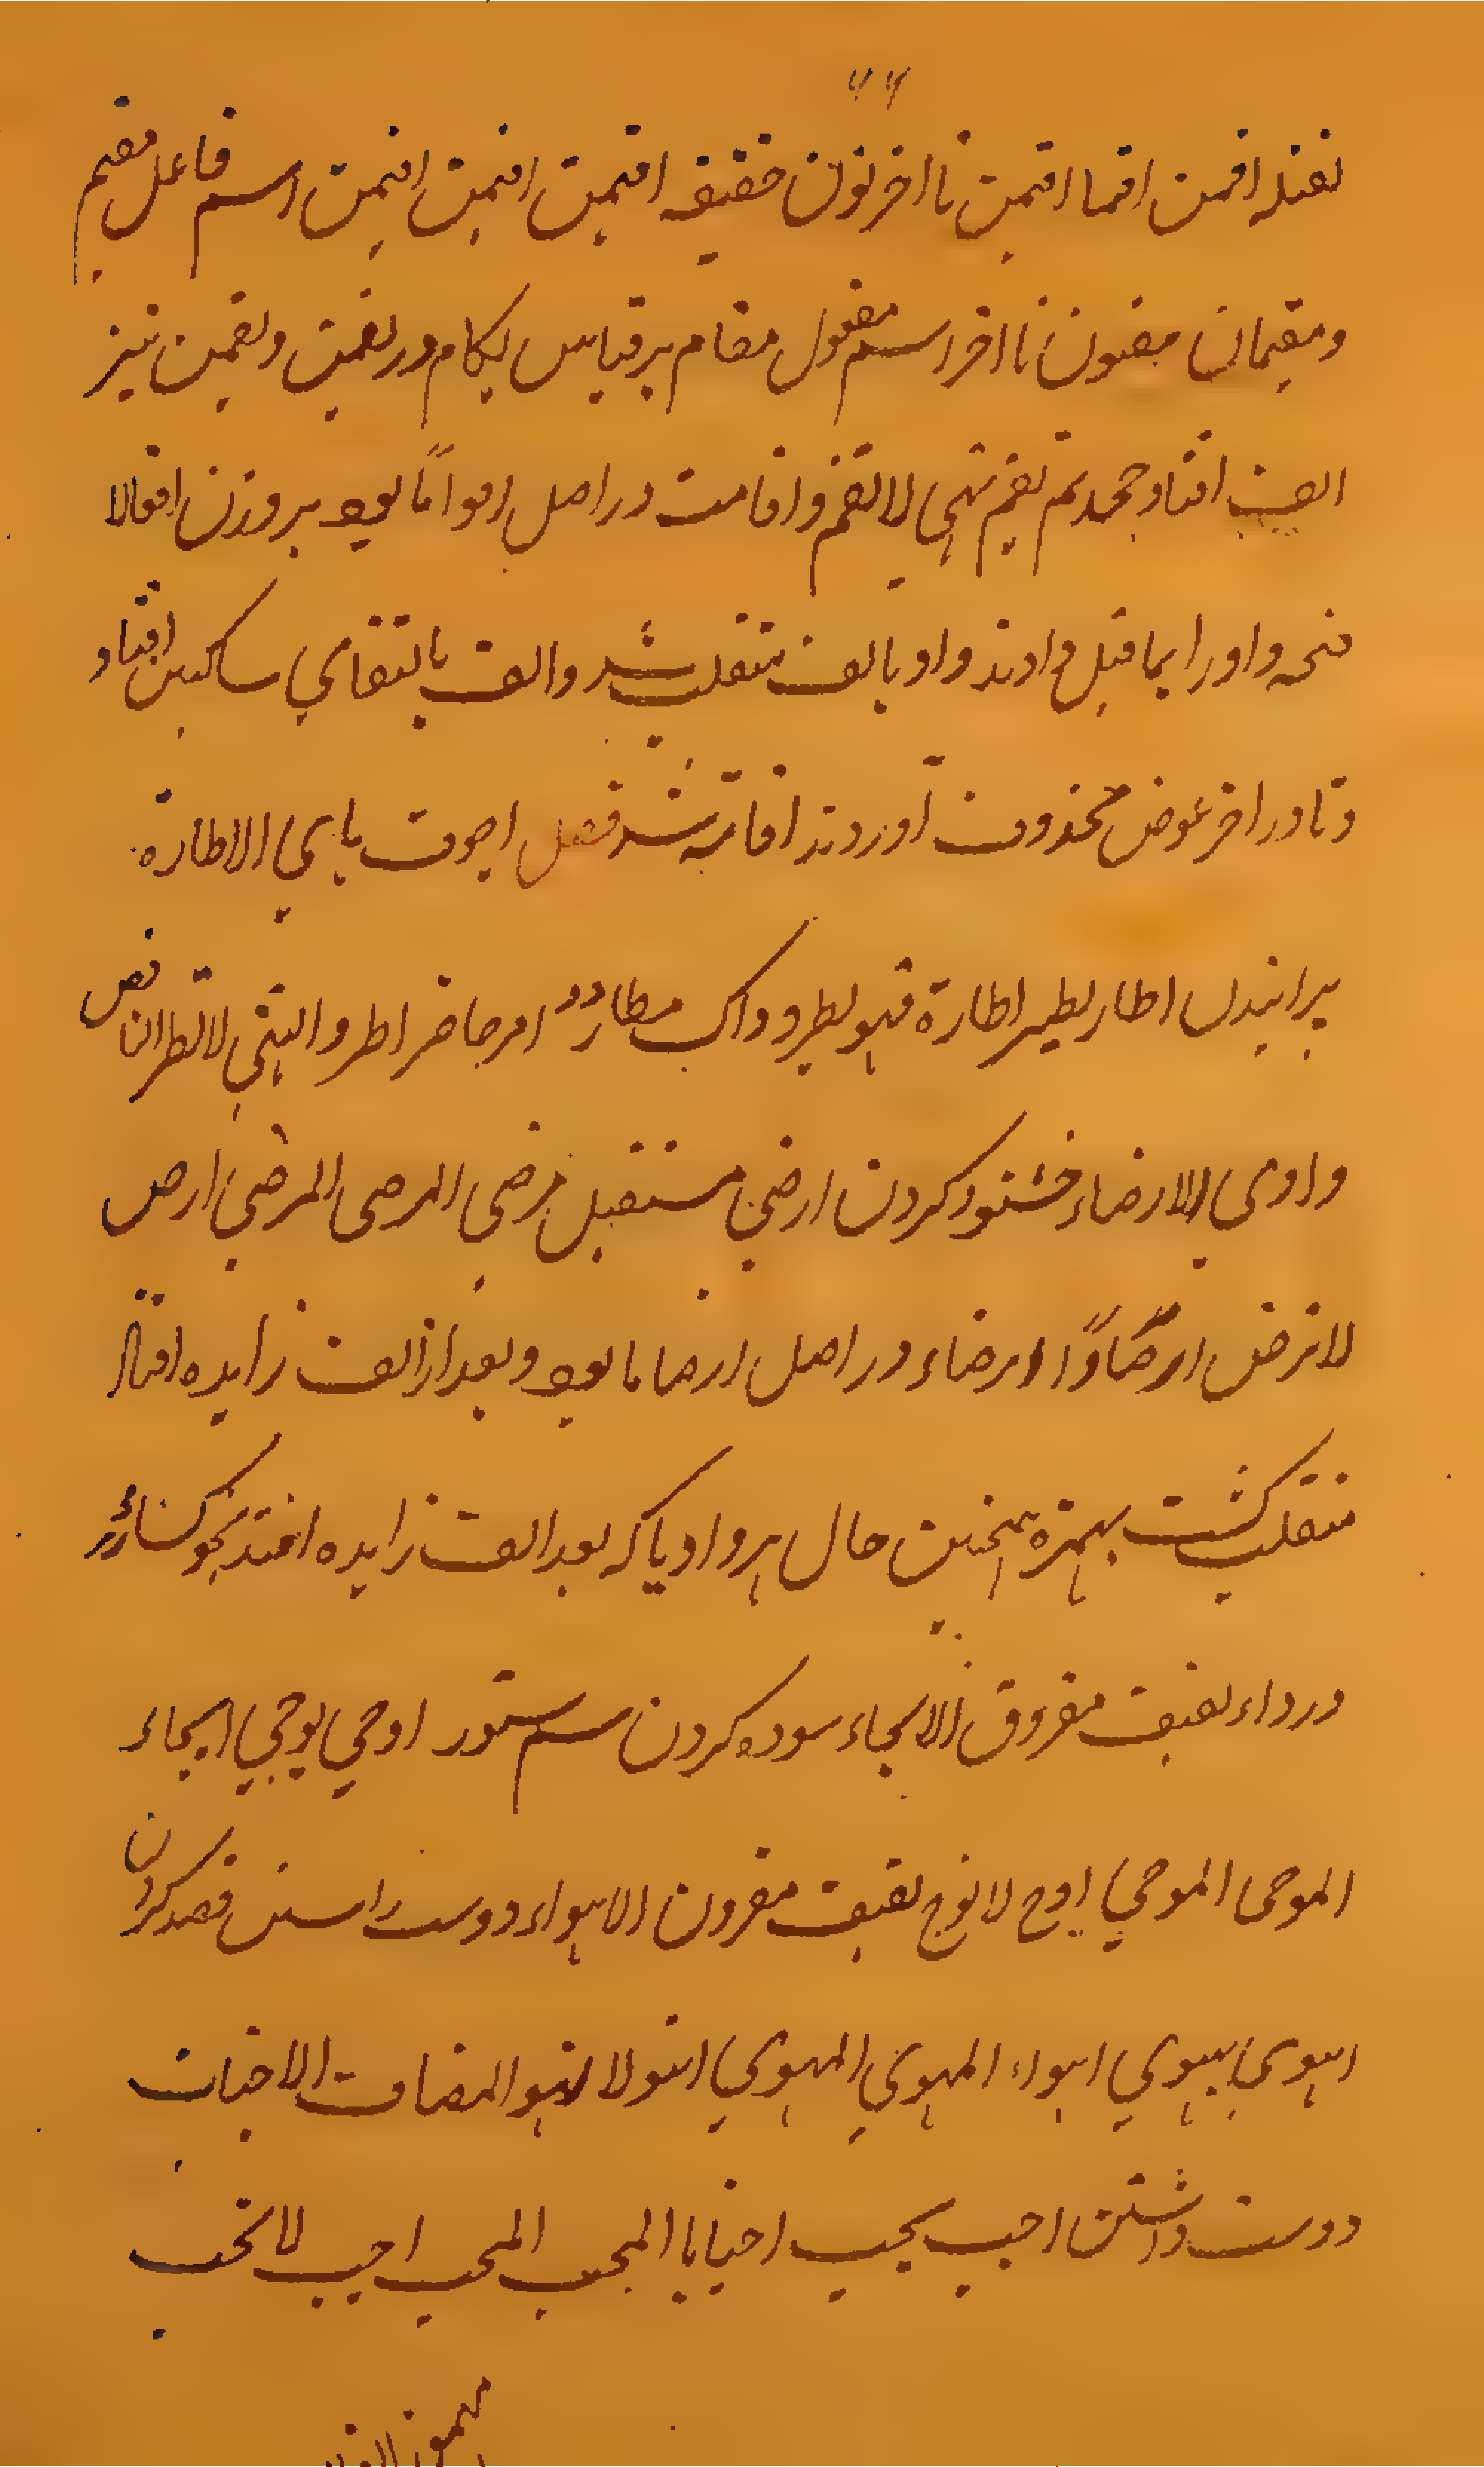 ثقیله اقمن اقما اقمن تا اخر نون خفیفه اقیمن اقیمن اقیمن اسم فاعل مقیم
ومقیمان مقیمون تا اخر اسم مفعول مقام بر قیاس یکام در یقمن وتقمن نیز
الف افتاد جحد لم یقم نهی لا تقم واقامت در اصل اقواما بود بر وزن افعالا
فتحه واو را بما قبل دادند واو بالف منقلب شد والف بالتقای ساکنین افتاد
وتا در اخر عوض محذوف اوردند اقامة شد فصل اجوف یایی الاطارة
پرانیدن اطار یطیر اطارة فهو مطیر وذاک مطار امر حاضر اطر والنهی لا تطر ناقص
واوی الارضاء خشنود کردن ارضی مستقبل یرضی المرضی المرضی ارض
لا ترض ارضاء در اصل ارضاوا بود و بعد از الف زایده افتاد
منقلب گشت بهمزه همچنین حال هر واو ویا که بعد الف زایده افتد نحو کساء
ورداء لفیف مفروق الایجاء سوده کردن سم ستور اوجی یوجی ایجاء
الموجی الموجی اوج لا توج لفیف مقرون الاهواء دوست داشتن قصد کردن
اهوی یهوی اهواء المهوی المهوی اهو لا تهو المضاف الاحباب
دوست داشتن احب یحب احبابا المحب المحب احبب لا تحب
مهموز الفاء